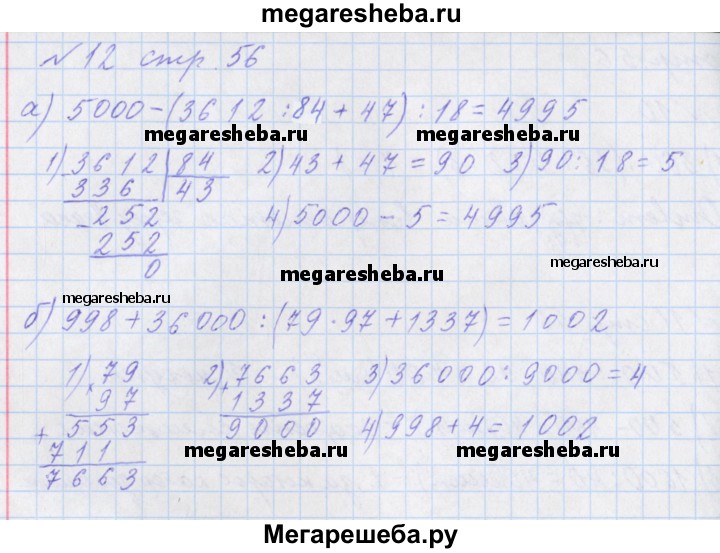 megaresheba.ru
№12 стр. 56
а) 5000-(3612:84+47):18=4995
megaresheba.ru megaresheba.ru
1) 3612 84 2) 43+47=90 3) 90:18=5
336 43
- 252 4) 5000-5=4995
252
0
megaresheba.ru
megaresheba.ru megaresheba.ru
б) 998+36000:(79·97+1337)=1002
1) × 79 2) + 7663 3) 36000:9000=4
97 1337
+ 553 9000 4) 998+4=1002
711
megaresheba.ru megaresheba.ru
7663
Мегарешеба.ру